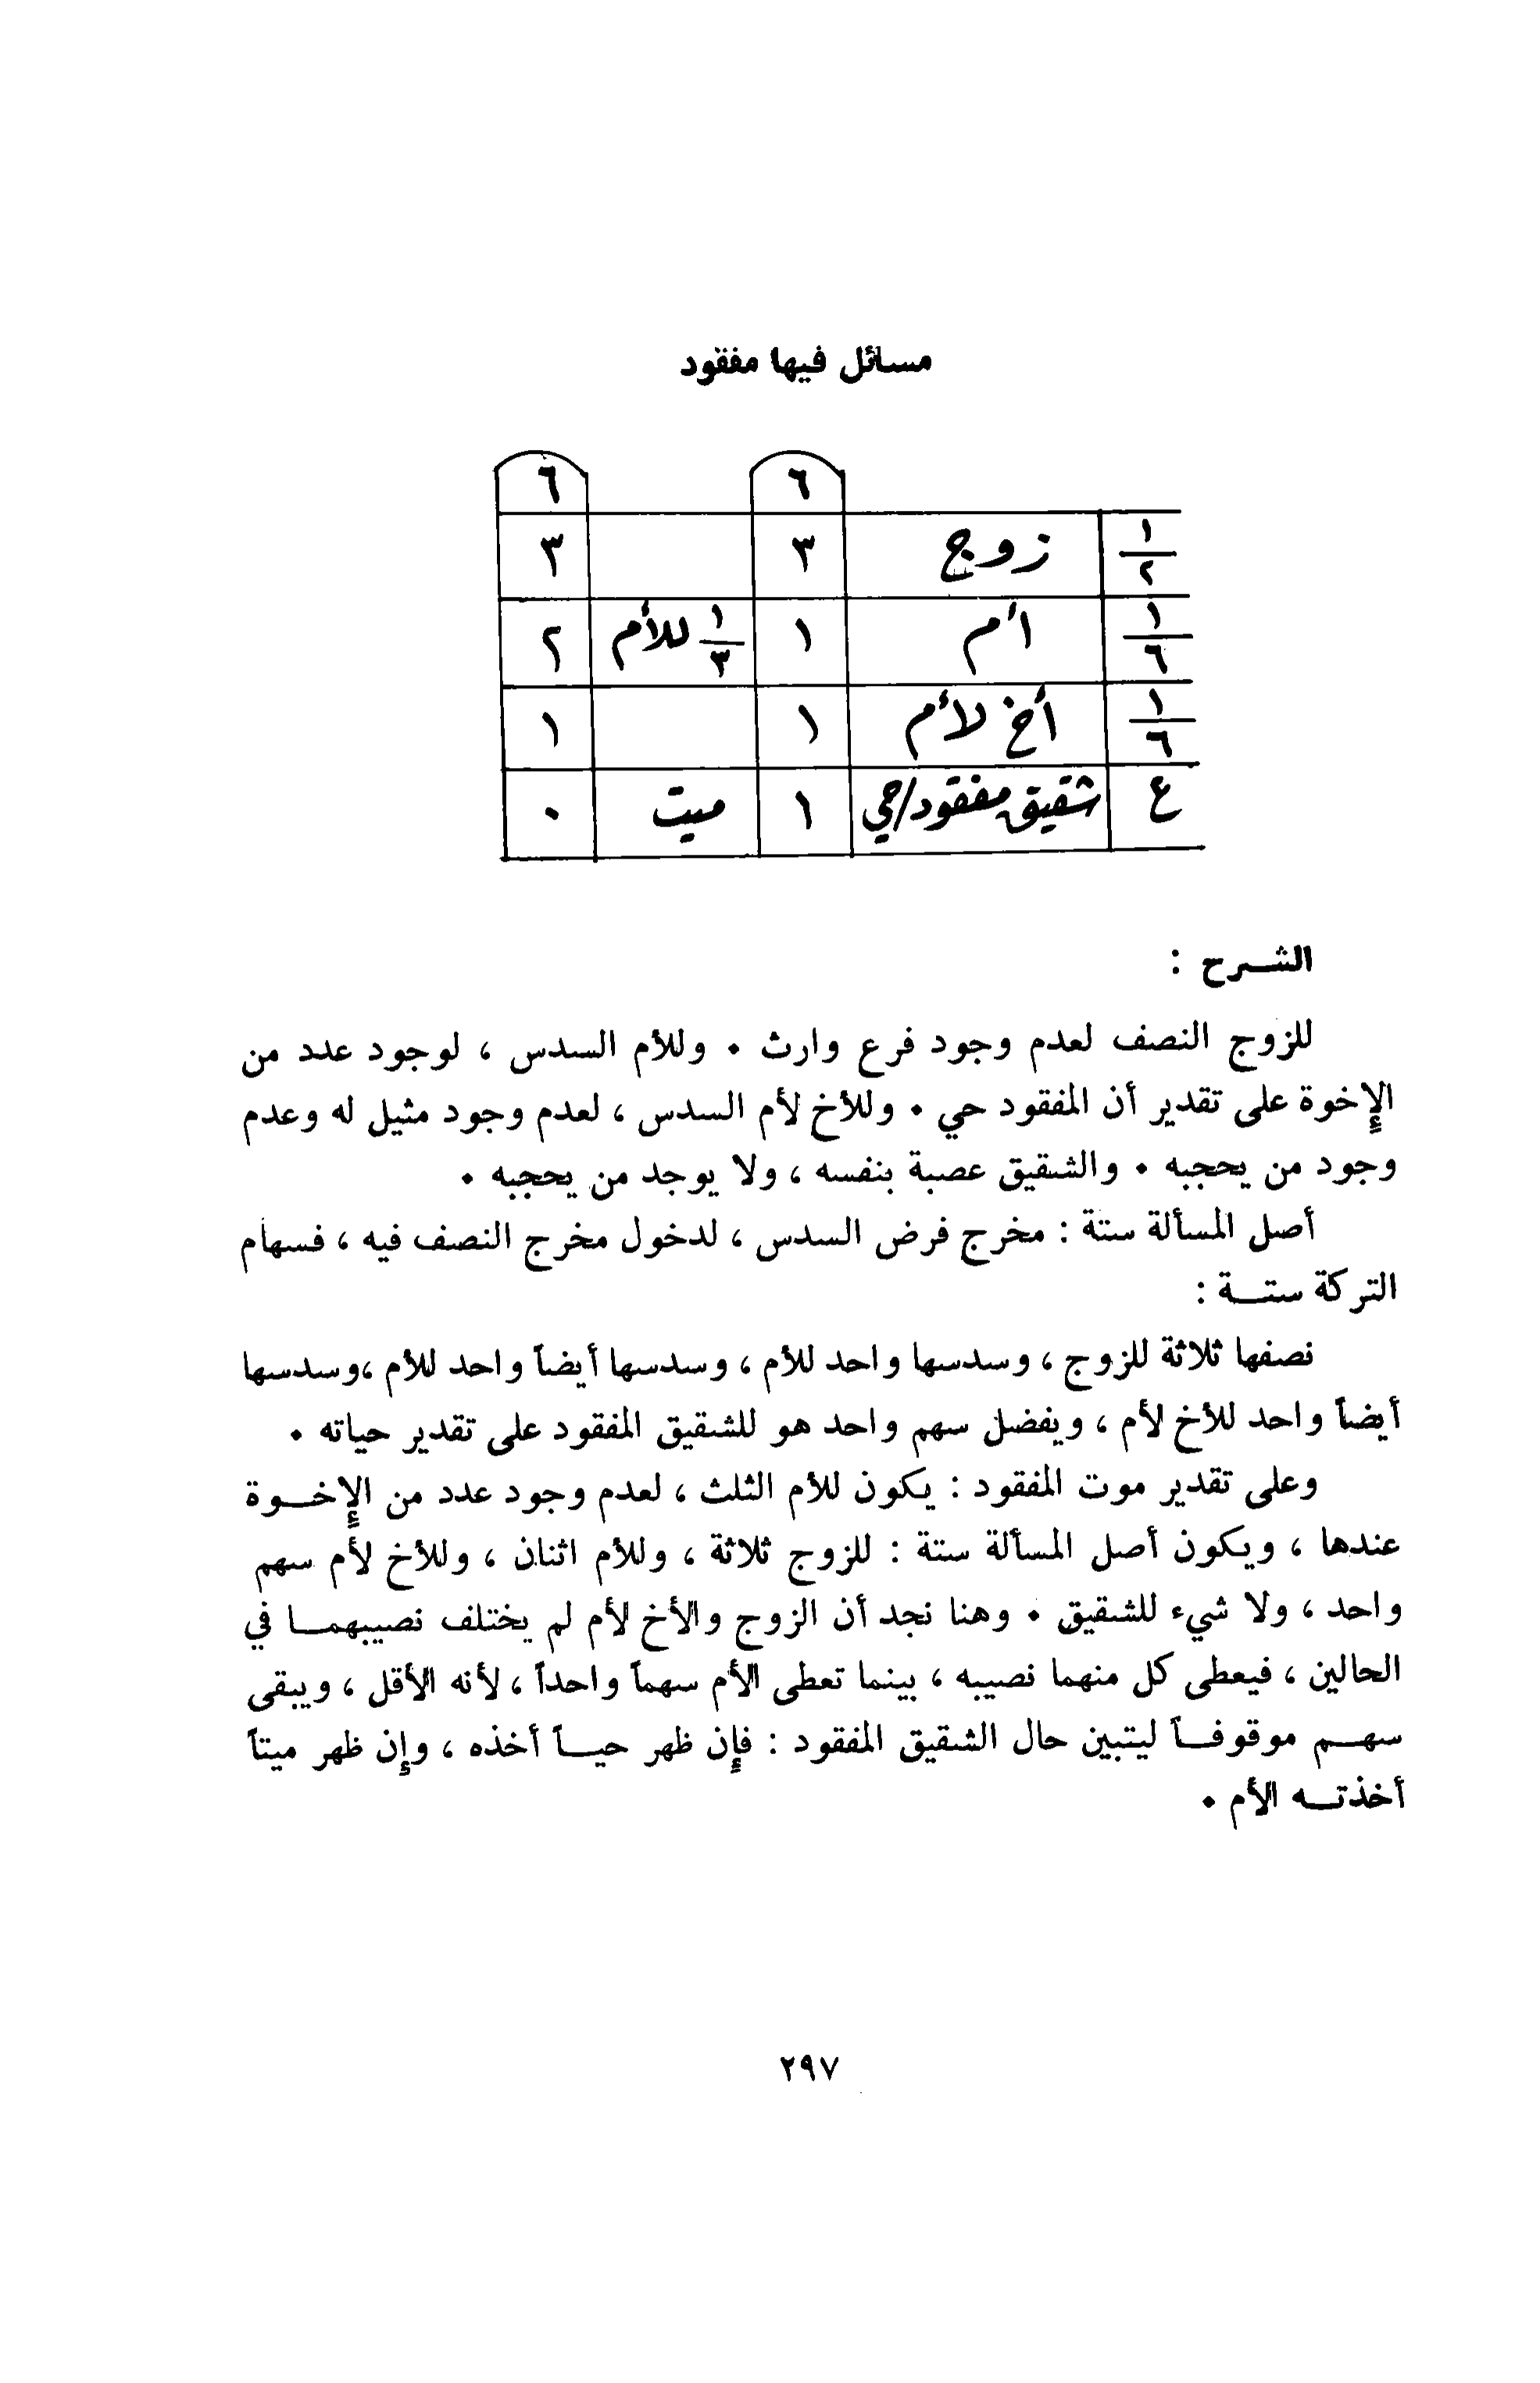 مسائل فيها مفقود
٦ ٦
١/٢ زوج ٣ ٣
١/٦ أم ١ ١/٣ للأم ٢
١/٦ أخ لأم ١ ١
ع شقيق مفقود/حي ١ ميت ٠
الشـرح :
للزوج النصف لعدم وجود فرع وارث ٠ وللأم السدس ، لوجود عدد من
الإخوة على تقدير أن المفقود حي ٠ وللأخ لأم السدس ، لعدم وجود مثيل له وعدم
وجود من يحجبه ٠ والشقيق عصبة بنفسه ، ولا يوجد من يحجبه ٠
أصل المسألة ستة : مخرج فرض السدس ، لدخول مخرج النصف فيه ، فسهام
التركة ستـــة :
نصفها ثلاثة للزوج ، وسدسها واحد للأم ، وسدسها أيضاً واحد للأم ،وسدسها
أيضاً واحد للأخ لأم ، ويفضل سهم واحد هو للشقيق المفقود على تقدير حياته ٠
وعلى تقدير موت المفقود : يكون للأم الثلث ، لعدم وجود عدد من الإخــوة
عندها ، ويكون أصل المسألة ستة : للزوج ثلاثة ، وللأم اثنان ، وللأخ لأم سهم
واحد ، ولا شيء للشقيق ٠ وهنا نجد أن الزوج والأخ لأم لم يختلف نصيبهمــا في
الحالين ، فيعطى كل منهما نصيبه ، بينما تعطى الأم سهماً واحداً ، لأنه الأقل ، ويبقى
سهــم موقوفــاً ليتبين حال الشقيق المفقود : فإن ظهر حيــاً أخذه ، وإن ظهر ميتاً
أخذتــه الأم ٠
٢٩٧